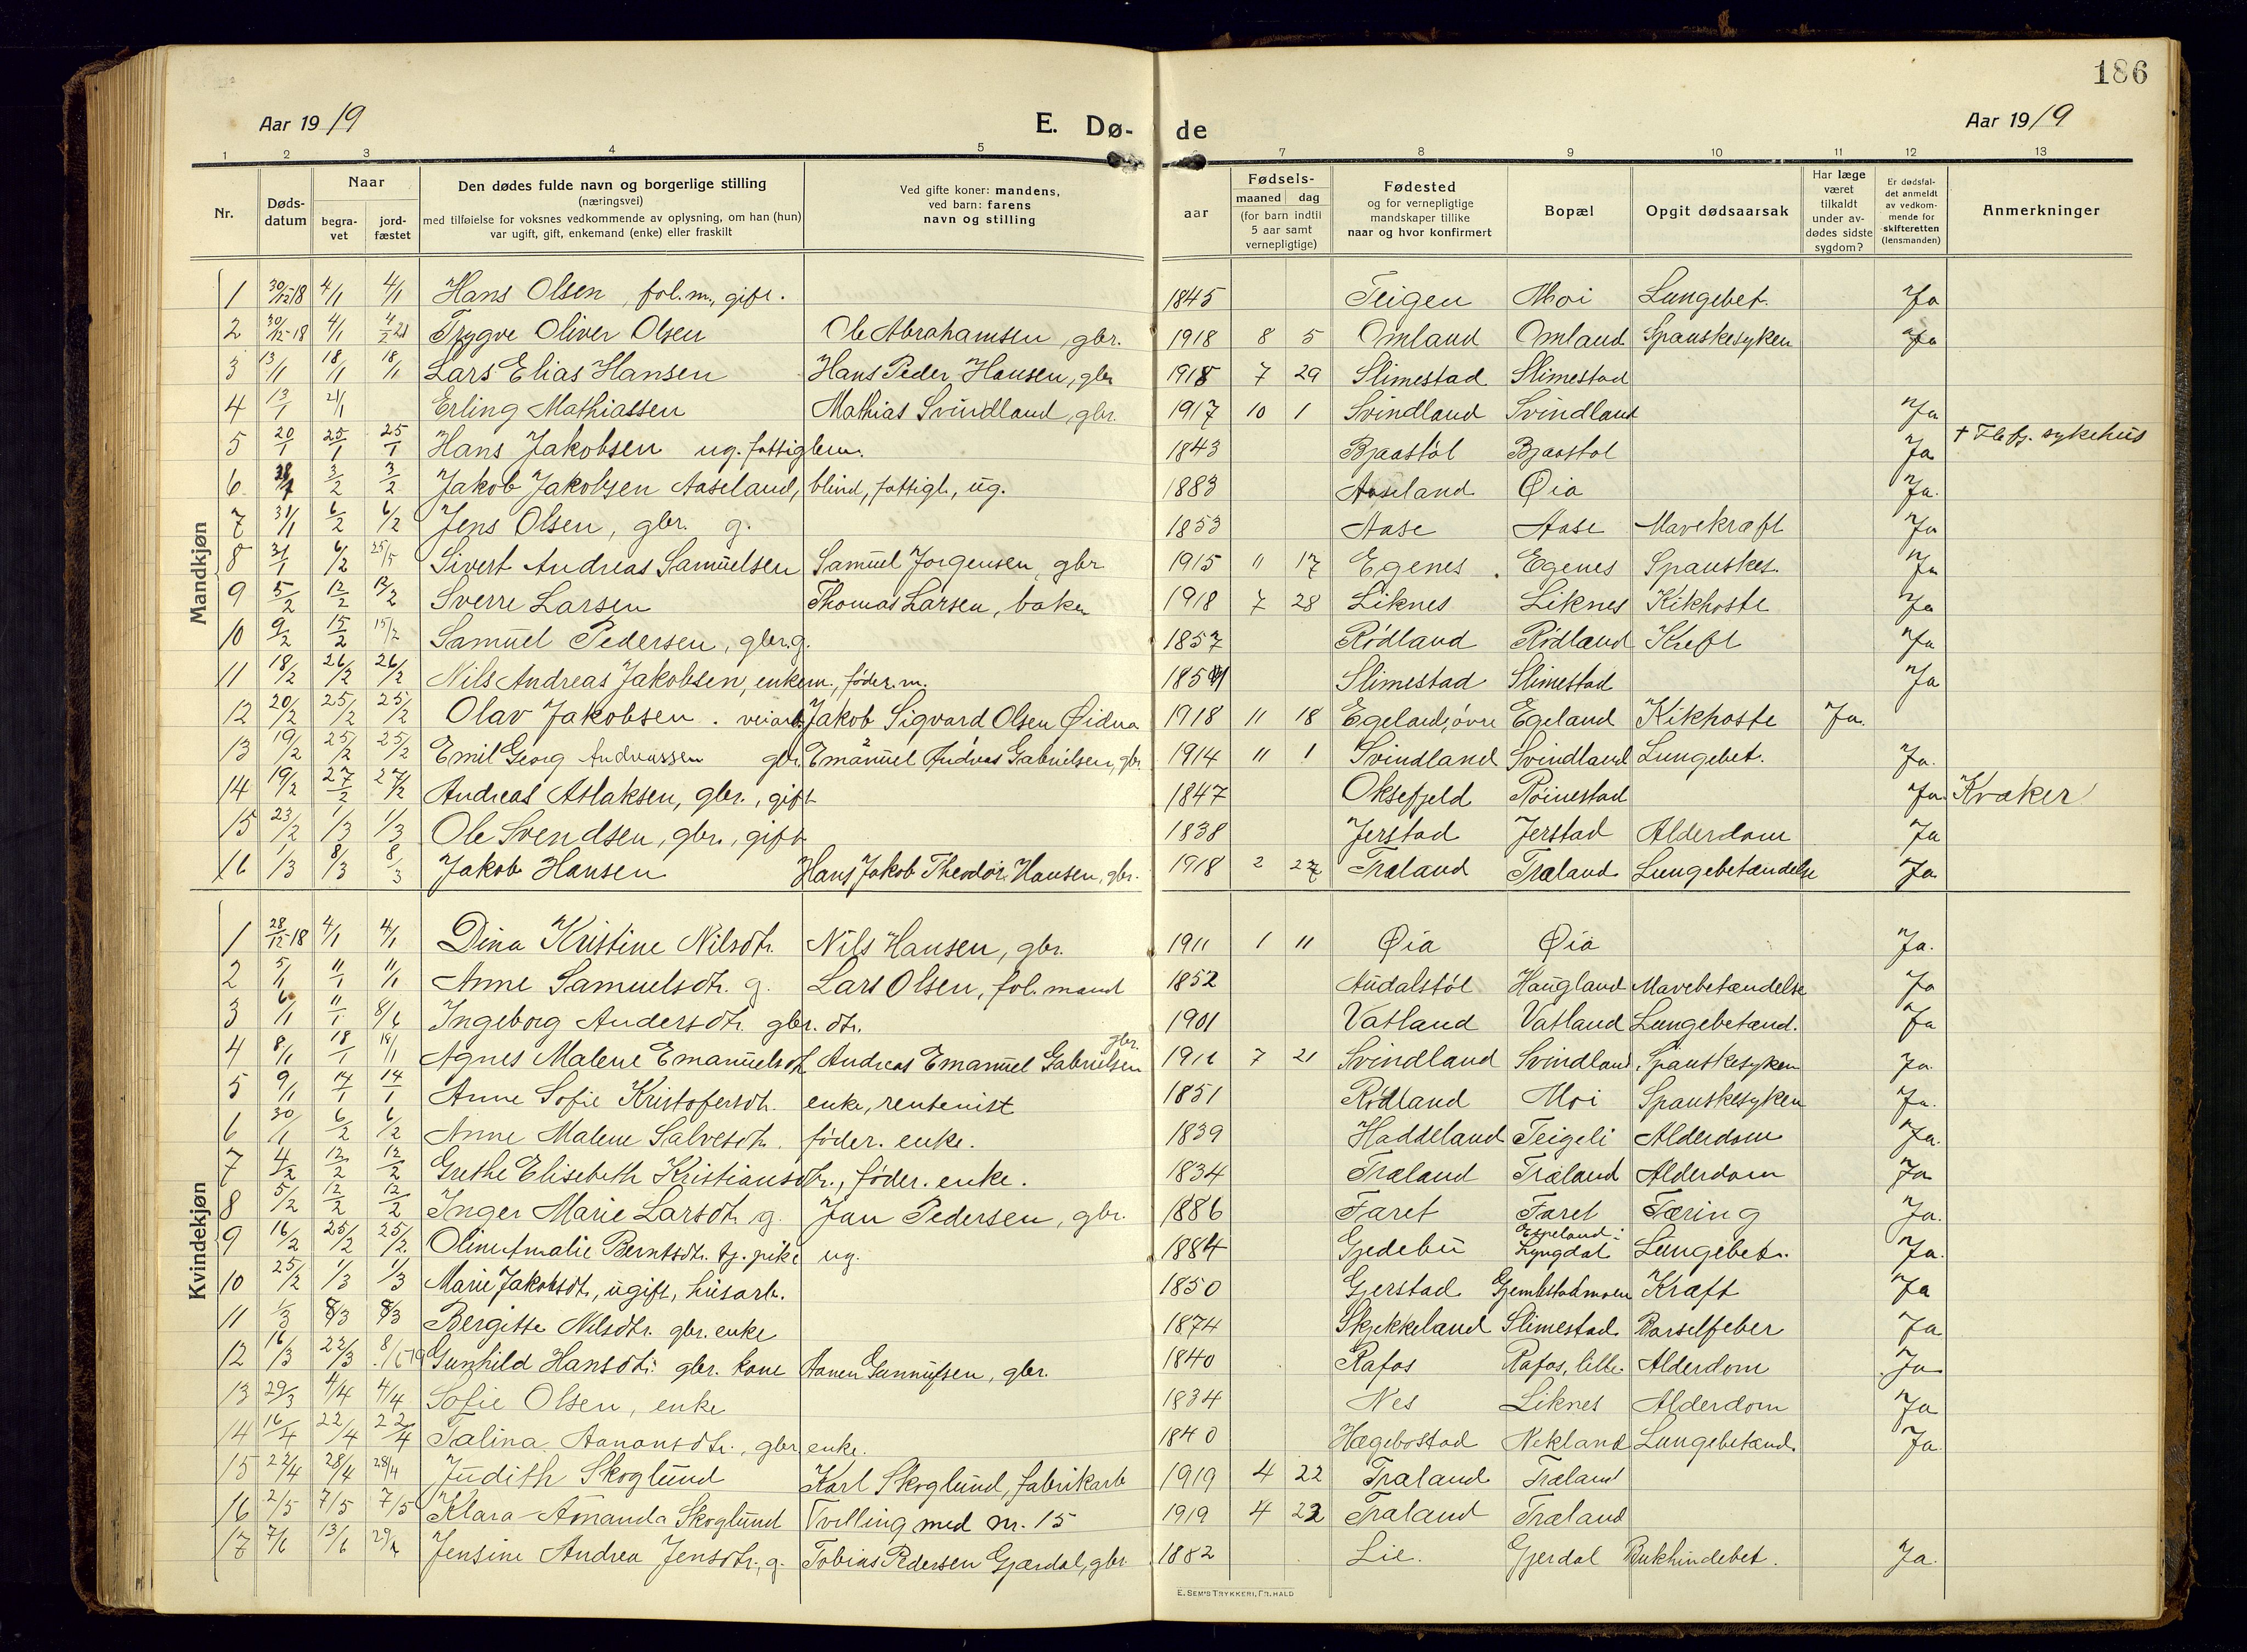 186
Aar 19 19
E. Dø-
de
Aar 19 19
1 2 3 4 5 7 8 9 10 11 12 13
Nr.
Døds-datum
Naar
begra-vet
jord-fæstet
Den dødes fulde navn og borgerlige stilling
(næringsvei)
med tilføielse for voksnes vedkommende av oplysning, om han (hun)
var ugift, gift, enkemand (enke) eller fraskilt
Ved gifte koner: mandens,
ved barn: farens
navn og stilling
aar
Fødsels-
maaned dag
(for barn indtil
5 aar samt
vernepligtige)
Fødested
og for vernepligtige
mandskaper tillike
naar og hvor konfirmert
Bopæl
Opgit dødsaarsak
Har læge
været
tilkaldt
under av-
dødes sidste
sygdom?
Er dødsfal-
det anmeldt
av vedkom-
mende for
skifteretten
(lensmanden)
Anmerkninger
Mandkjøn
1 30/12-18 4/1 4/1 Hans Olsen, fol.m., gift. 1845 Teigen Moi Lungebet. Ja
2 30/12-18 4/1 Trygve Oliver Olsen Ole Abrahamsen, gbr. 1918 8 5 Omland Omland Spanskesyken Ja
3 13/1 18/1 18/1 Lars Elias Hansen Hans Peder Hansen, gbr 1918 7 29 Slimestad Slimestad
4 13/1 21/1 Erling Mathiassen Mathias Svindland, gbr. 1917 10 1 Svindland Svindland Ja
5 20/1 25/1 25/1 Hans Jakobsen ug. fattiglem. 1843 Bjaastøl Bjaastøl Ja † Flefj. sykehus
6 3/2 3/2 Jakob Jakobsen Aaseland, blind, fattigl., ug. 1883 Aaseland Øia Ja.
7 31/1 6/2 6/2 Jens Olsen, gbr. g. 1853 Aase Aase Mavekræft Ja
8 31/1 6/2 25/5 Sivert Andreas Samuelsen Samuel Jørgensen, gbr 1915 11 17 Egenes Egenes Spanskes. Ja
9 5/2 12/2 12/2 Sverre Larsen Thomas Larsen, baker 1918 7 28 Liknes Liknes Kikhoste Ja
10 9/2 15/2 15/2 Samuel Pedersen, gbr. g. 1857 Rødland Rødland Kræft Ja
11 18/2 26/2 26/2 Nils Andreas Jakobsen, enkem., føder.m. Slimestad Slimestad Ja
12 20/2 25/2 25/2 Olav Jakobsen. veiarb. Jakob Sigvard Olsen Øidna 1918 11 18 Egeland, øvre Egeland Kikhoste Ja.
13 19/2 25/2 25/2 Emil Georg Andreassen gbr. Emanuel Andreas Gabrielsen, gbr. 1914 11 1 Svindland Svindland Lungebet. Ja.
14 19/2 27/2 27/2 Andreas Aslaksen, gbr., gift 1847 Oksefjeld Røinestad Ja. Kvæker
15 23/2 1/3 1/3 Ole Svendsen, gbr., gift 1838 Jerstad Jerstad Alderdom Ja
16 1/3 8/3 8/3 Jakob Hansen Hans Jakob Theodor Hansen, gbr. 1918 2 27 Træland Træland Lungebetændelse Ja
Kvindekjøn
1 28/12-18 4/1 4/1 Dina Kristine Nilsdtr. Nils Hansen, gbr. 1911 1 11 Øia Øia Ja.
2 5/1 11/1 11/1 Anne Samuelsdtr. g. Lars Olsen, fol. mand 1852 Audalstøl Haugland Mavebetændelse Ja
3 6/1 11/1 8/6 Ingeborg Andersdtr. gbr. dtr. 1901 Vatland Vatland Lungebetænd. Ja
4 8/1 18/1 18/1 Agnes Malene Emanuelsdtr. Andreas Emanuel Gabrielsen gbr. 7 21 Svindland Svindland Spanskesyken Ja
5 9/1 14/1 14/1 Anne Sofie Kristofersdtr. enke, rentenist 1851 Rødland Moi Spanskesyken Ja.
6 30/1 6/2 6/2 Anne Malene Salvesdtr. føder. enke. 1839 Haddeland Teigeli Alderdom Ja.
7 4/2 12/2 12/2 Grethe Elisebeth Kristiansdtr., føder. enke. 1834 Træland Træland Alderdom Ja
8 5/2 12/2 12/2 Inger Marie Larsdtr. g. Jan Pedersen, gbr. 1886 Faret Faret Tæring Ja.
9 16/2 25/2 25/2 Oline Amalie Berntsdtr. tj. pike ug. 1884 Gjedebu Espeland i Lyngdal Lungebet. Ja.
10 25/2 1/3 1/3 Marie Jakobsdt., ugift, husarb. 1850 Gjerstad Gjemlestadmoen Kræft Ja
11 1/3 8/3 8/3 Bergitte Nilsdtr. gbr. enke 1874 Skjekkeland Slimestad Barselfeber Ja
12 16/3 22/3 8/6 19 Gunhild Hansdtr. gbr. kone Aanen Gunnufsen, gbr. 1840 Rafos Rafos, lille. Alderdom Ja
13 29/3 4/4 4/4 Sofie Olsen, enke 1834 Nes Liknes Alderdom Ja
14 16/4 22/4 22/4 Talina Aanonsdtr., gbr. enke. 1840 Hægebostad Nekland Lungebetænd. Ja
15 22/4 28/4 28/4 Judith Skoglund Karl Skoglund, fabrikarb 1919 4 22 Træland Træland
16 2/5 7/5 7/5 Klara Amanda Skoglund Tvilling med nr. 15 1919 4 22 Træland Træland
17 7/6 13/6 Jensine Andrea Jensdtr., g. Tobias Pedersen Gjærdal, gbr 1882 Lie. Gjerdal Bukhindebet. Ja.
E. SEM'S TRYKKERI, FR.HALD